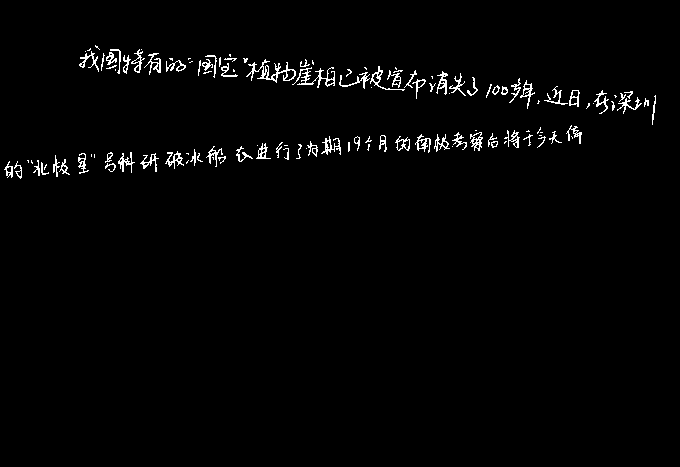 我国特有的“国宝”植物崖柏已被宣布消失了100多年,近日,在深圳
的“北极星”号科研破冰船在进行了为期19个月的南极考察后将于今天停